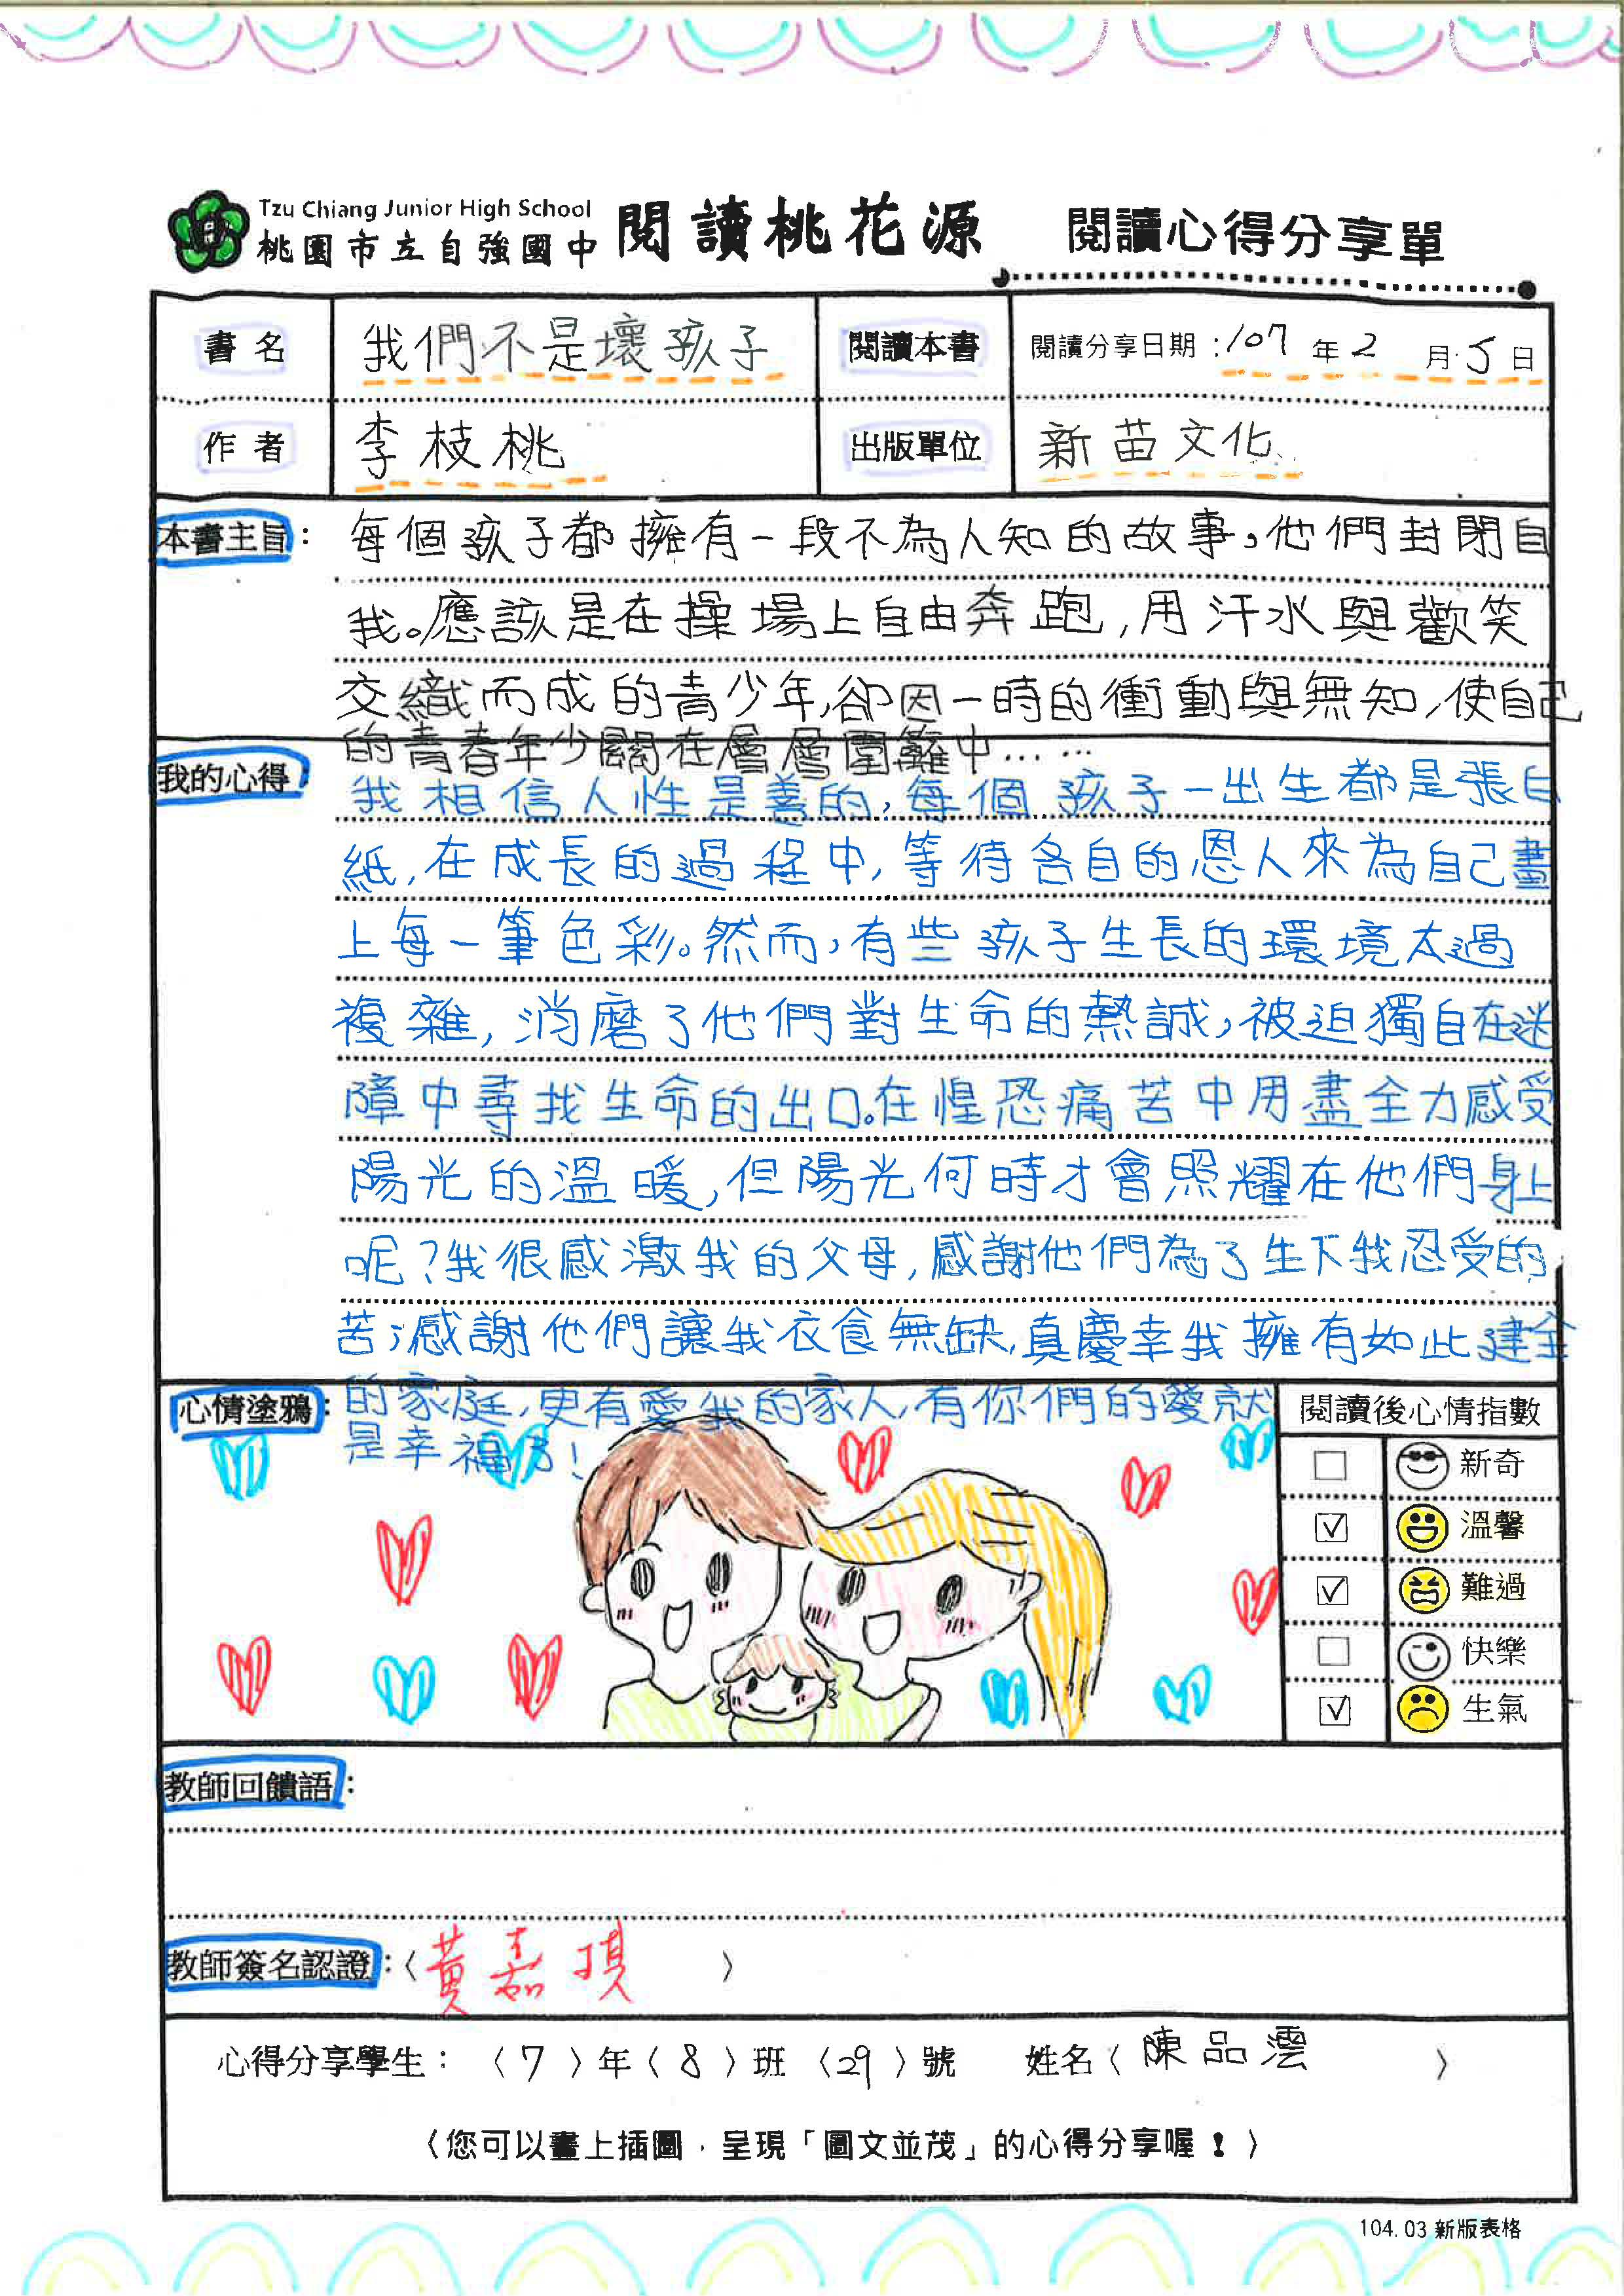 Tzu Chiang Junior High School
桃園市立自強國中 閱讀桃花源 閱讀心得分享單
書名 我們不是壞孩子 閱讀本書 閱讀分享日期：107年2月5日
作者 李枝桃 出版單位 新苗文化
本書主旨：每個孩子都擁有一段不為人知的故事，他們封閉自
我。應該是在操場上自由奔跑，用汗水與歡笑
交織而成的青少年，卻因一時的衝動與無知，使自己
的青春年少關在層層圍籬中……
我的心得：我相信人性是善的，每個孩子一出生都是張白
紙，在成長的過程中，等待各自的恩人來為自己畫
上每一筆色彩。然而，有些孩子生長的環境太過
複雜，消磨了他們對生命的熱誠，被迫獨自在迷
障中尋找生命的出口。在惶恐痛苦中用盡全力感受
陽光的溫暖，但陽光何時才會照耀在他們身上
呢？我很感激我的父母，感謝他們為了生下我忍受的
苦；感謝他們讓我衣食無缺，真慶幸我擁有如此建全
的家庭，更有愛我的家人，有你們的愛就
是幸福了！
心情塗鴉：
閱讀後心情指數
□ 新奇
☑ 溫馨
☑ 難過
□ 快樂
☑ 生氣
教師回饋語：
教師簽名認證：〈黃嘉 〉
心得分享學生：〈7〉年〈8〉班〈29〉號 姓名〈陳品澐〉
〈您可以畫上插圖，呈現「圖文並茂」的心得分享喔！〉
104.03新版表格